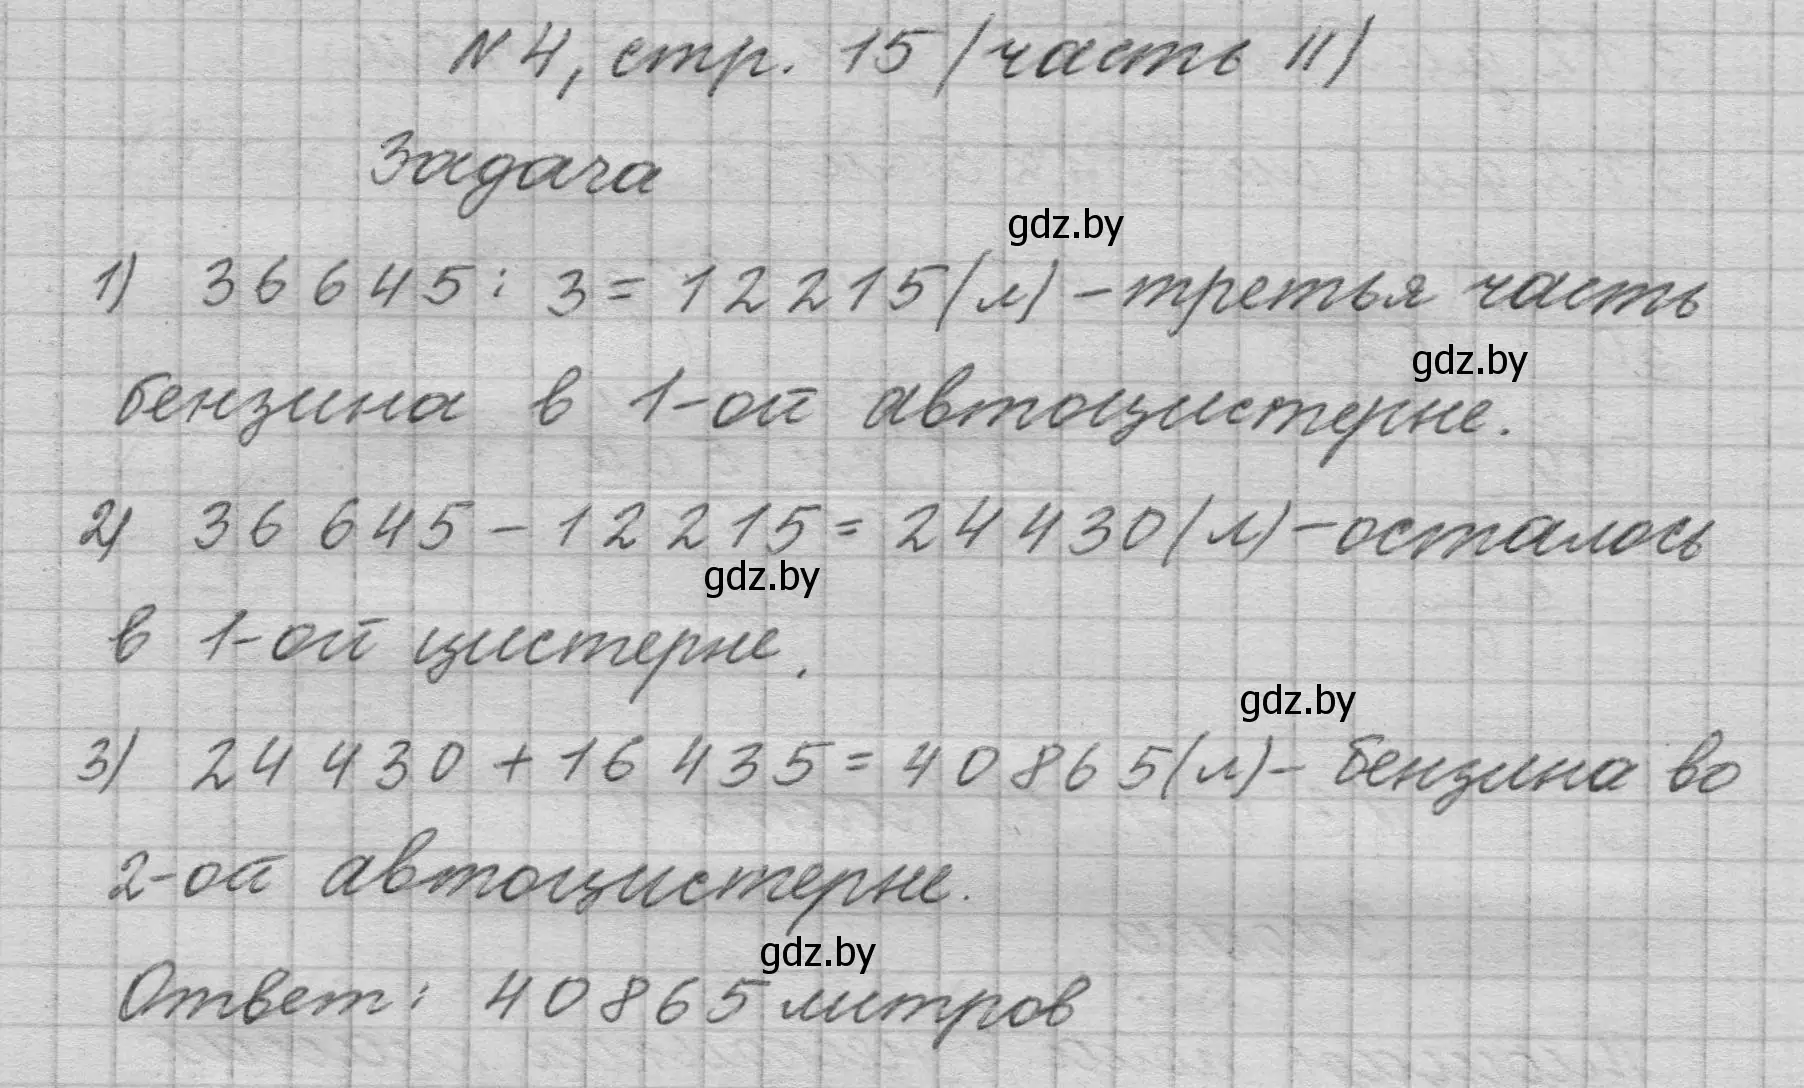 № 4, стр. 15 (часть II)
Задача
gdz.by
1) 36 645 : 3 = 12 215 (л) – третья часть
gdz.by
бензина в 1-ой автоцистерне.
2) 36 645 – 12 215 = 24 430 (л) – осталось
gdz.by
в 1-ой цистерне.
gdz.by
3) 24 430 + 16 435 = 40 865 (л) – бензина во
2-ой автоцистерне.
gdz.by
Ответ: 40 865 литров